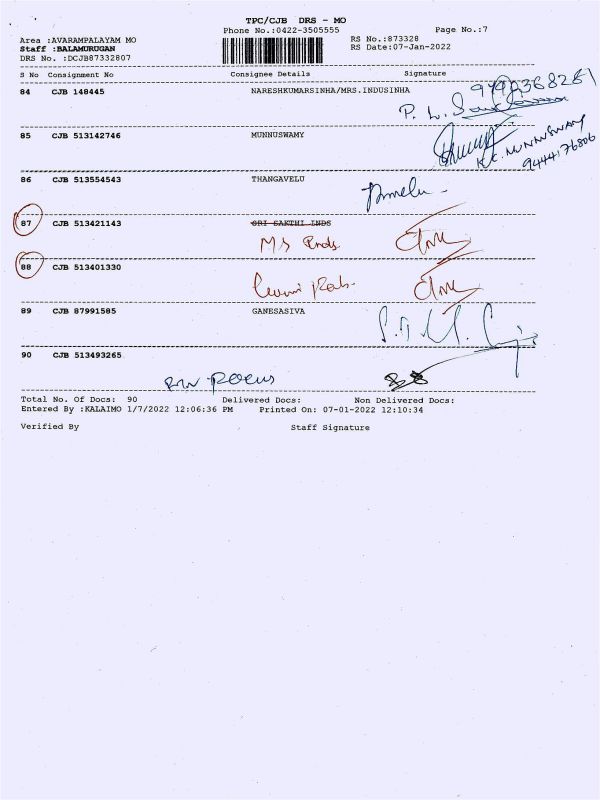 TPC/CJB DRS - MO
Phone No.:0422-3505555 Page No.:7
Area :AVARAMPALAYAM MO RS No.:873328
Staff :BALAMURUGAN RS Date:07-Jan-2022
DRS No. :DCJB87332807
S No Consignment No Consignee Details Signature
84 CJB 148445 NARESHKUMARSINHA/MRS.INDUSINHA
85 CJB 513142746 MUNNUSWAMY
K.C. MUNNUSWAMY
9444176806
86 CJB 513554543 THANGAVELU
87 CJB 513421143 SRI SAKTHI INDS
MS Inds.
88 CJB 513401330
89 CJB 87991585 GANESASIVA
90 CJB 513493265
Total No. Of Docs: 90 Delivered Docs: Non Delivered Docs:
Entered By :KALAIMO 1/7/2022 12:06:36 PM Printed On: 07-01-2022 12:10:34
Verified By Staff Signature